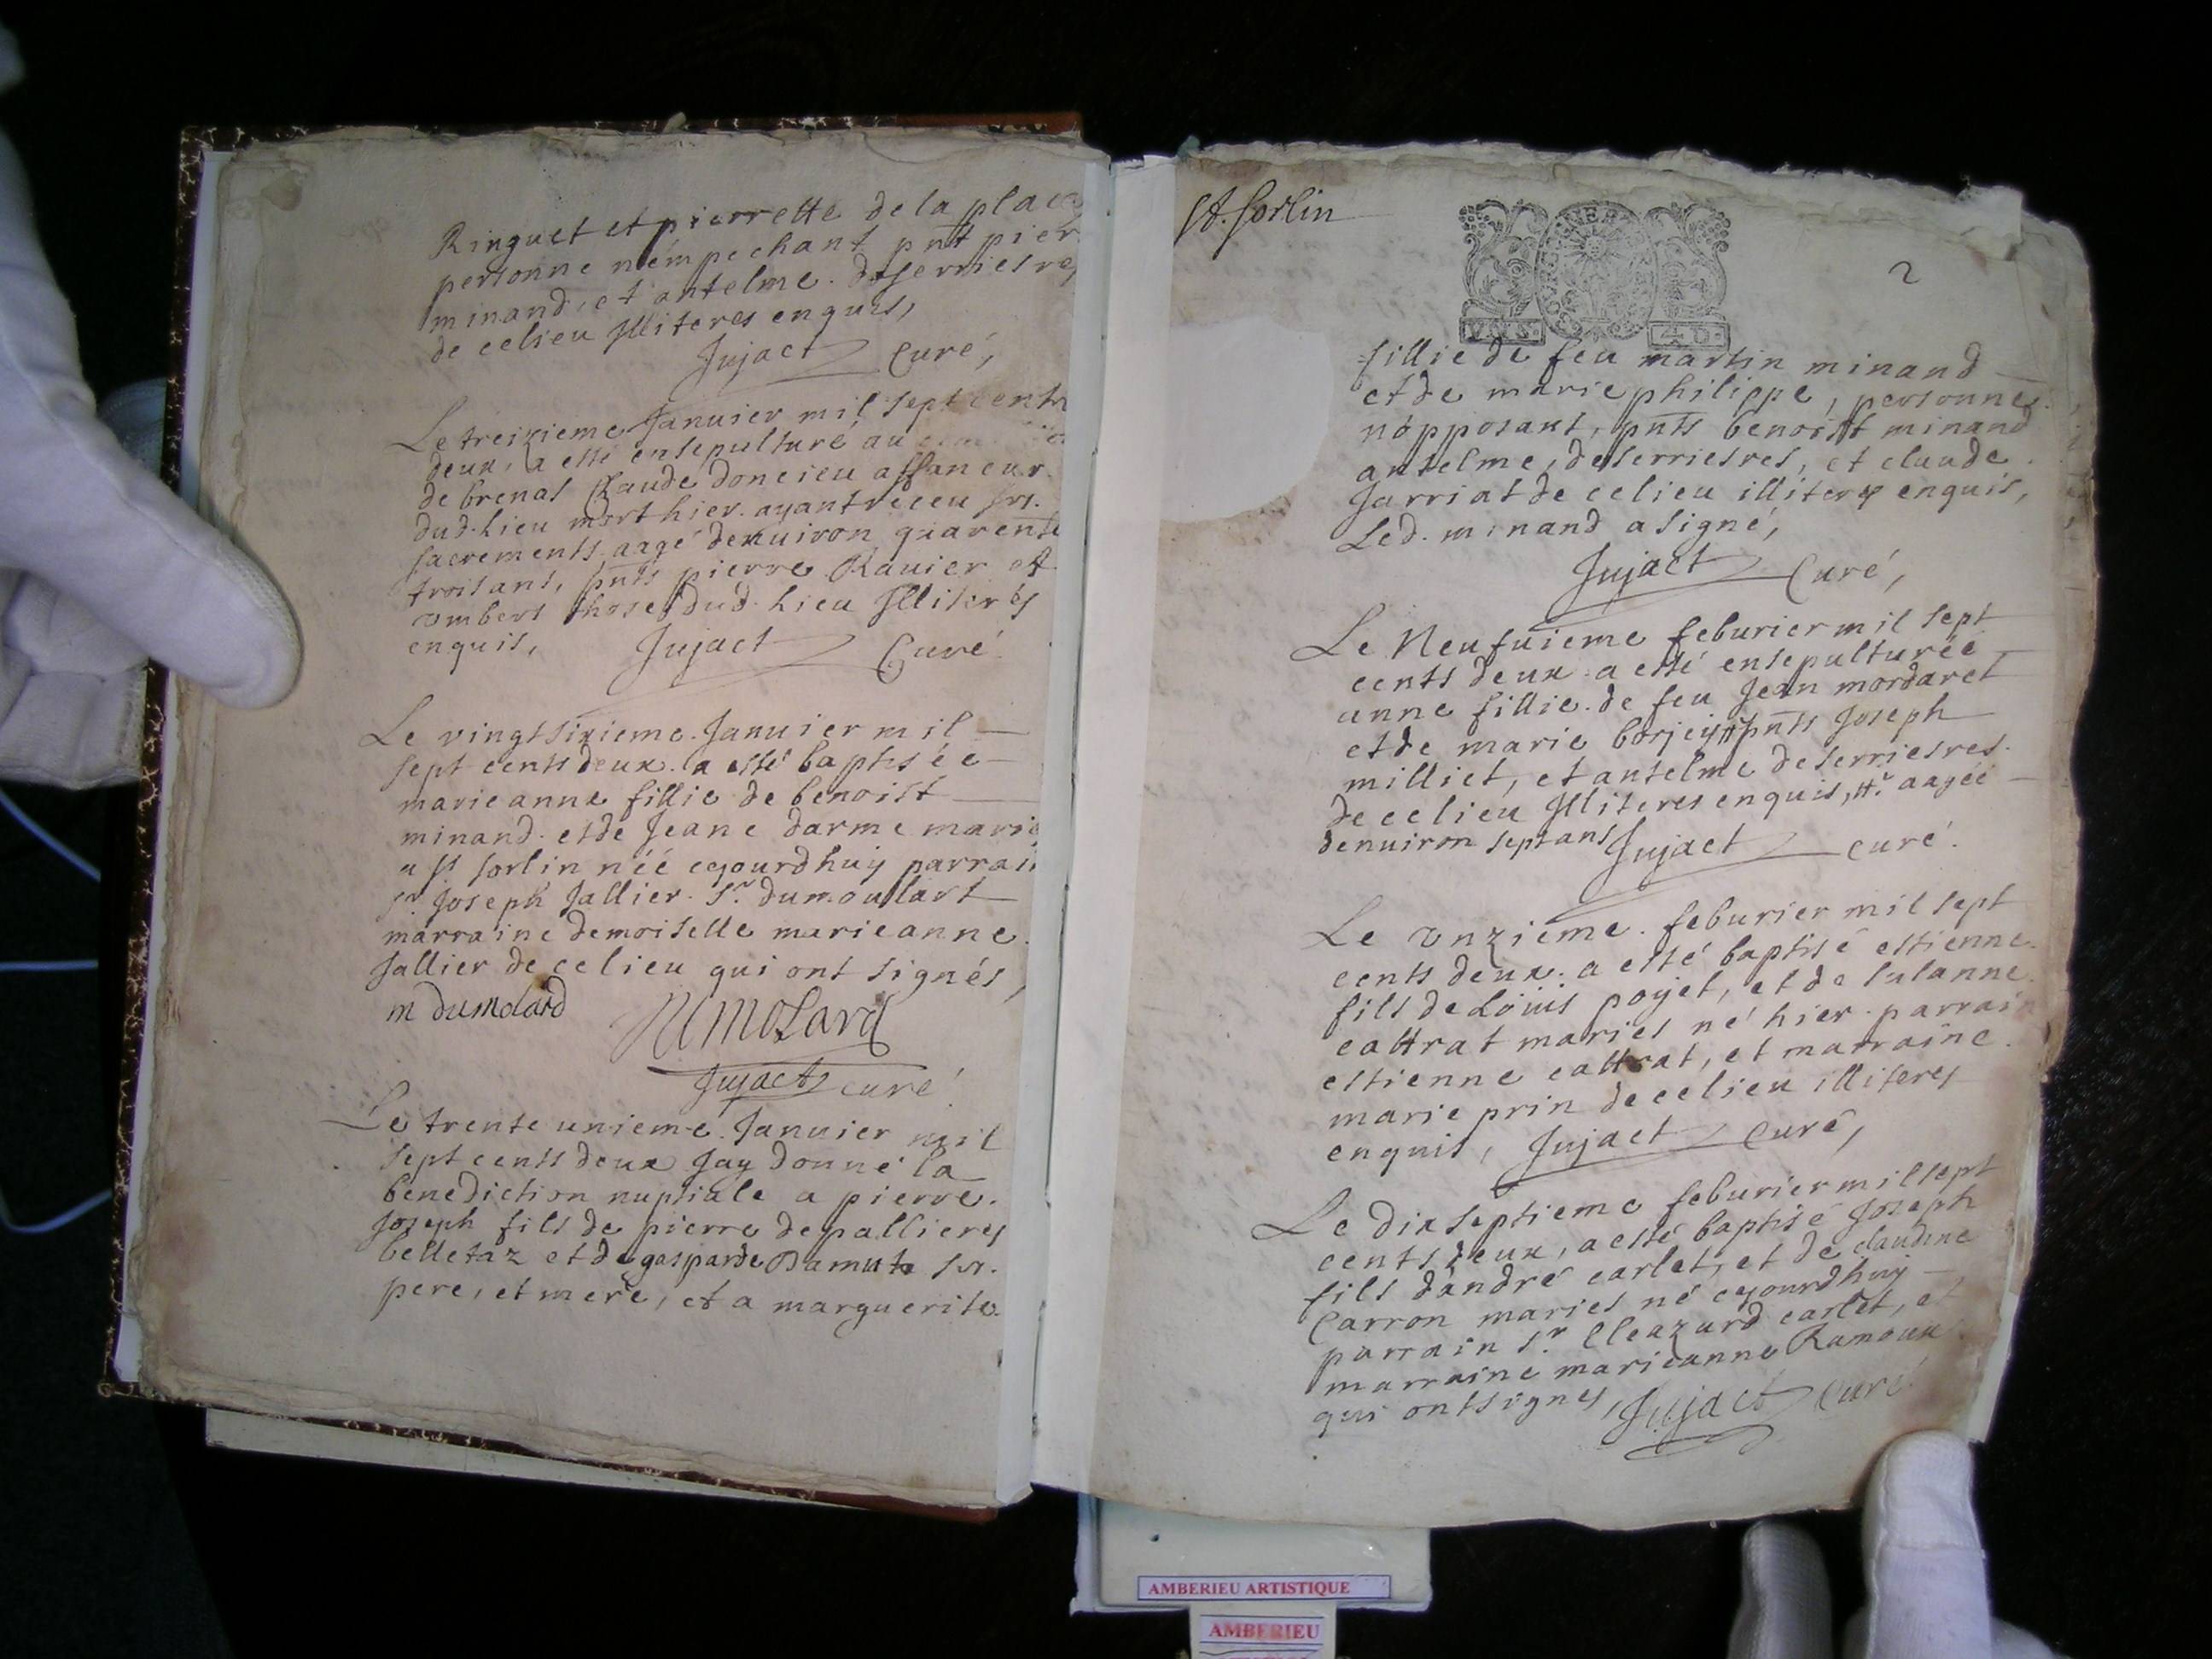 Ringuet et pierrette de la place
personne n'empechant pnt pier
minand, et antelme deserriesres
de ce lieu Illiteres enquis,
Jujact Curé,
Le treizieme Januier mil sept cents
deux, a esté ensepulturé au
de brenas Claude doncieu affaneur
dud. lieu mort hier. ayant receu srs.
sacrements aagé denuiron quarente
trois ans, pnts pierre Rauier et
ombert those dud. lieu Illiterés
enquis, Jujact Curé
Le vingt sixieme Januier mil
sept cents deux. a esté baptisée
marieanne fillie de benoist
minand et de Jeane darme mariés
a st. sorlin néé cejourdhuy parrain
sr. Joseph Jallier sr. dumoullart
marraine demoiselle marieanne
Jallier de ce lieu qui ont signés,
m dumolard Dumolard
Jujact curé
Le trente unieme Januier mil
sept cents deux Jay donné la
benediction nuptiale a pierre.
Joseph fils de pierre depallieres
belletaz et de gasparde Damute srs.
pere, et mere, et a marguerite
St. Sorlin
2
V.NS. 4 D.
fillie de feu martin minand
et de marie philippe, personne
n'opposant, pnts benoist minand
antelme, deserriesres, et claude
Jarriat de ce lieu illiteres enquis,
Led. minand a signé,
Jujact Curé,
Le Neufuieme feburier mil sept
cents deux a esté ensepulturée
anne fillie de feu Jean mordaret
et de marie borjey # pnts Joseph
milliet, et antelme deserriesres
de ce lieu Illiteres enquis, #. aagée
denuiron sept ans Jujact curé.
Le onzieme. feburier mil sept
cents deux. a esté baptisé estienne
fils de Loüis poyet, et de sulanne
cattrat mariés né hier parrain
estienne cattrat, et marraine
marie prin de ce lieu illiteres
enquis, Jujact Curé,
Le dix septieme feburier mil sept
cents deux, a esté baptisé Joseph
fils d'andré carlet, et de claudine
Carron mariés né cejourdhuy
parrain sr. Eleazard carlet, et
marraine marieanne Ramoux
qui ont signes, Jujact Curé
AMBERIEU ARTISTIQUE
AMBERIEU